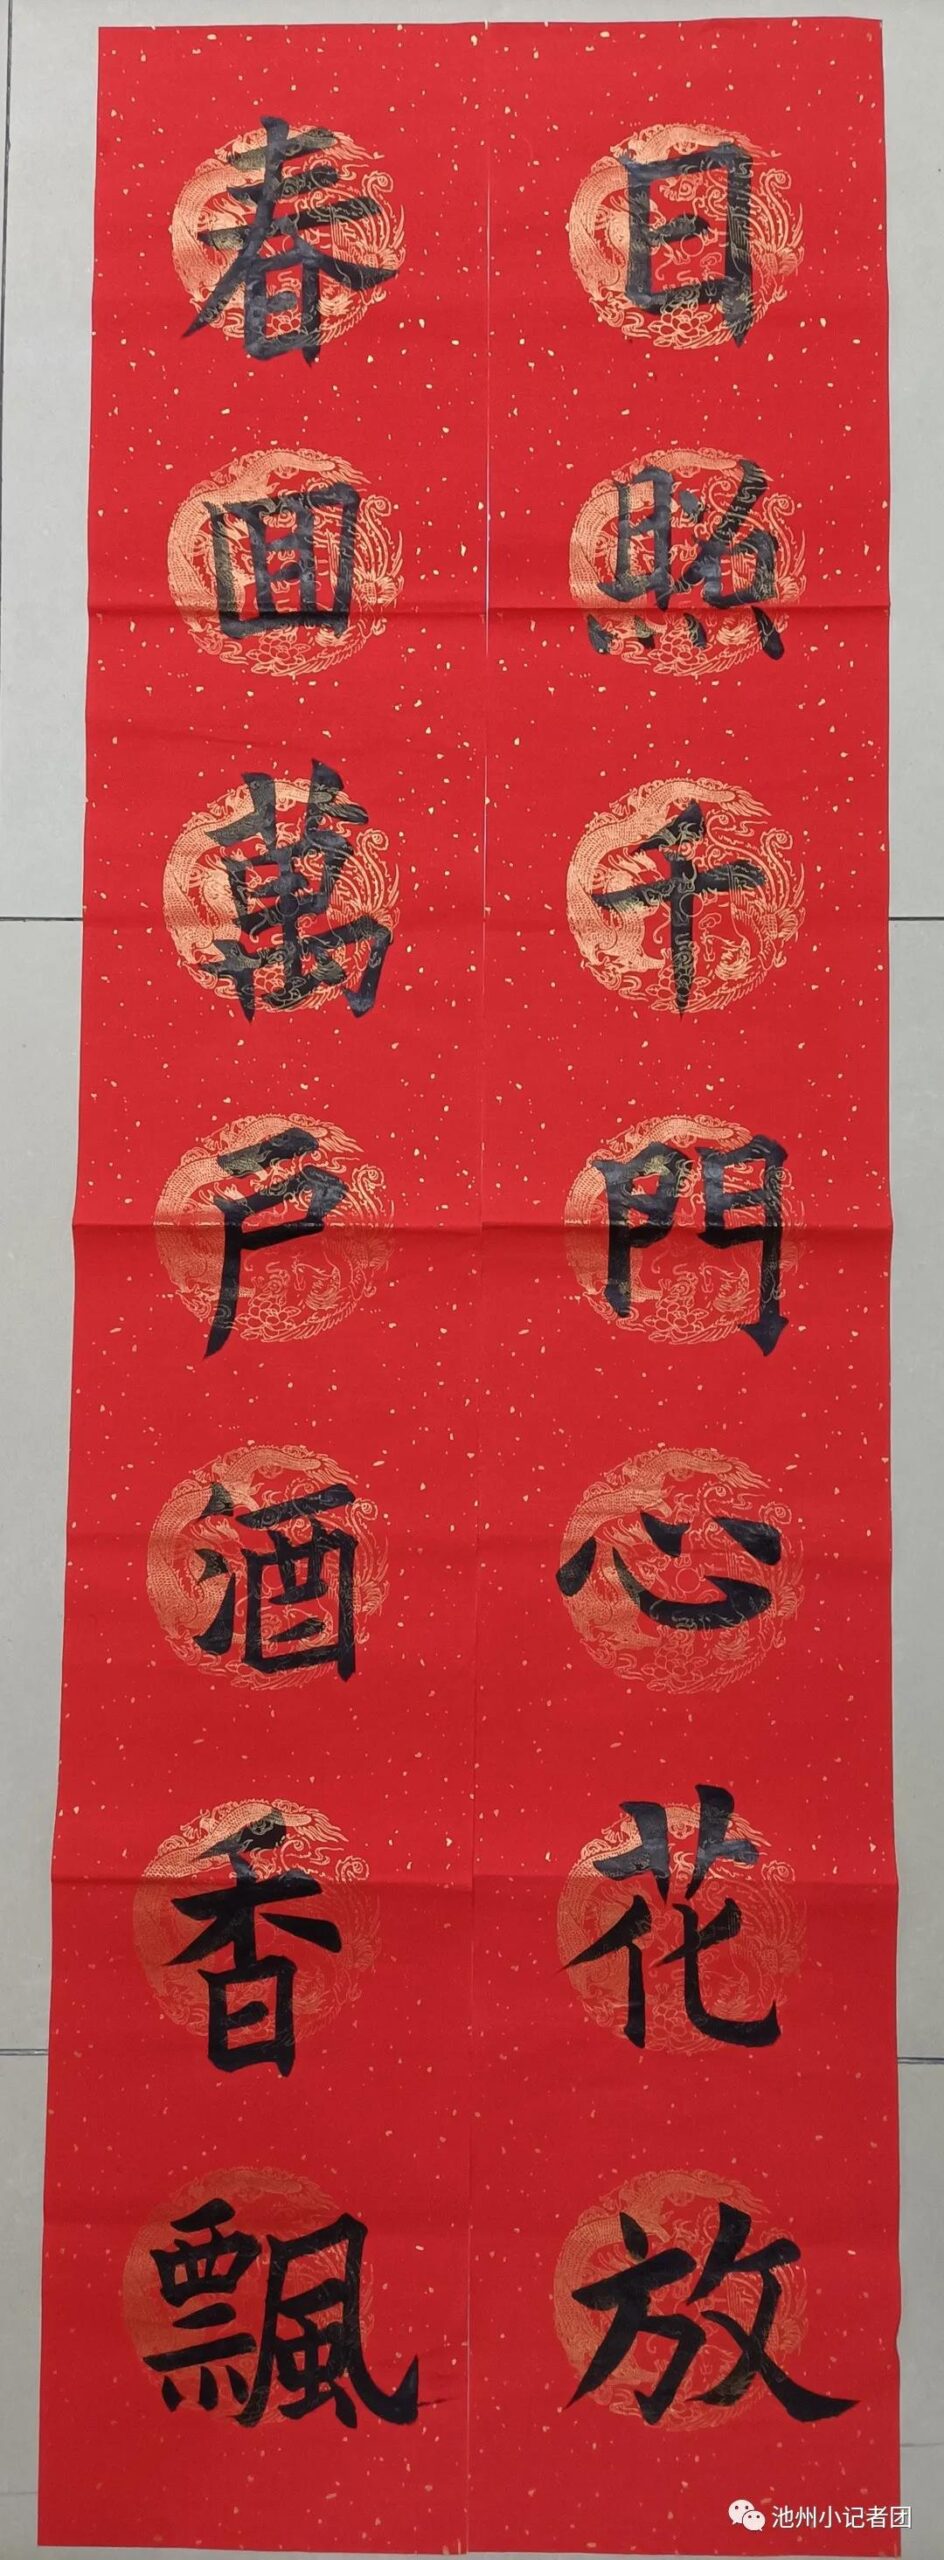 日照千門心花放
春回萬戶酒香飄
池州小记者团